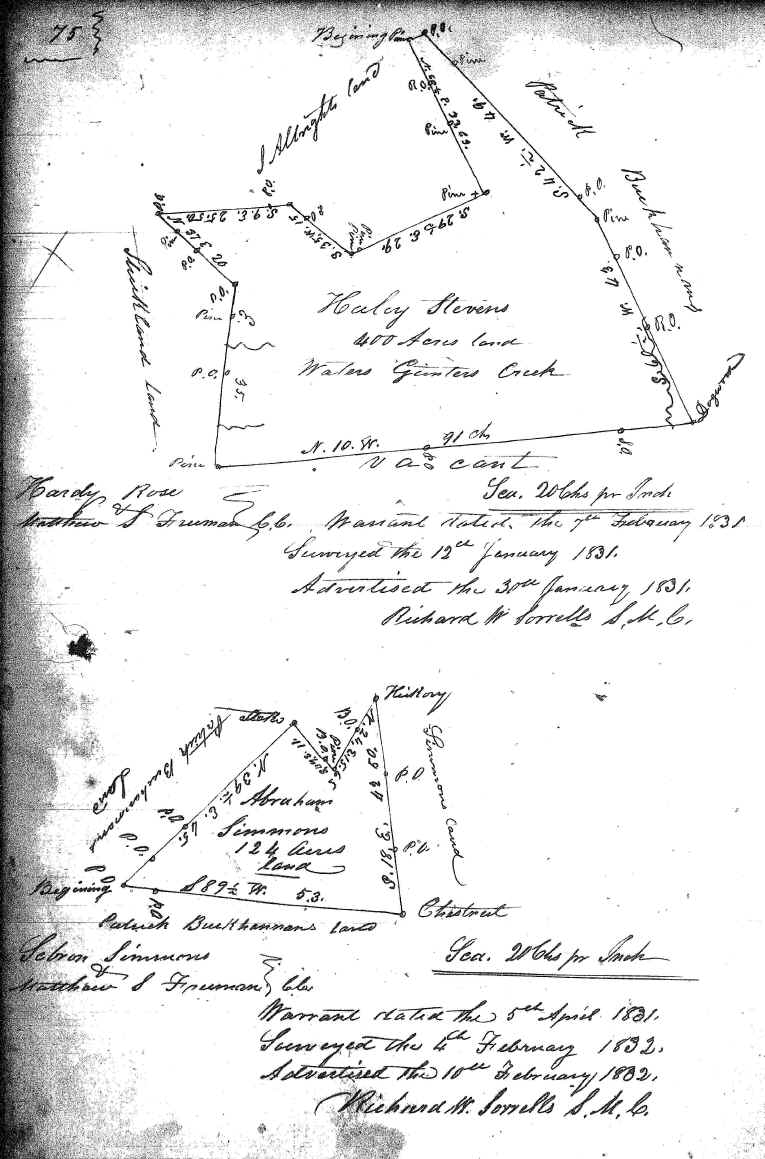 75
Begining Pine
P.O.
Pine
R.O.
Pine
Pine
J Albrights land
Patrick
Buckhannans
S. 42½ W. 49.
P.O.
Pine
P.O.
R.O.
Dogwood
S. 29½ E. 29.
Pine
Pine
S. 9. E. 25.50
P.O.
Strickland land
Pine
P.O.
35.
Pine
Haley Stevens
400 Acres land
Waters Gunters Creek
N. 10. W. 91 chs
P.O.
vacant
Hardy Rose
&
Matthew S Freeman C.C.
Sca. 20 Chs pr Inch
Warrant dated the 7th February 1831
Surveyed the 12th January 1831.
Advertised the 30th January 1831.
Richard W Sorrells S. M. C.
Hickory
Stake
B.O.
Patrick Buckhannans
Land
N. 39½ E. 45.
Simmons land
P.O.
P.O.
S. 18. E. 42 50
Abraham
Simmons
124 Acres
land
P.O.
P.O.
Begining
S 89½ W. 53.
P.O.
Chestnut
Patrick Buckhannans land
Sebron Simmons
&
Matthew S Freeman
Sca. 20 Chs pr Inch
Warrant dated the 5th April 1831.
Surveyed the 4th February 1832.
Advertised the 10th February 1832.
Richard W. Sorrells S. M. C.